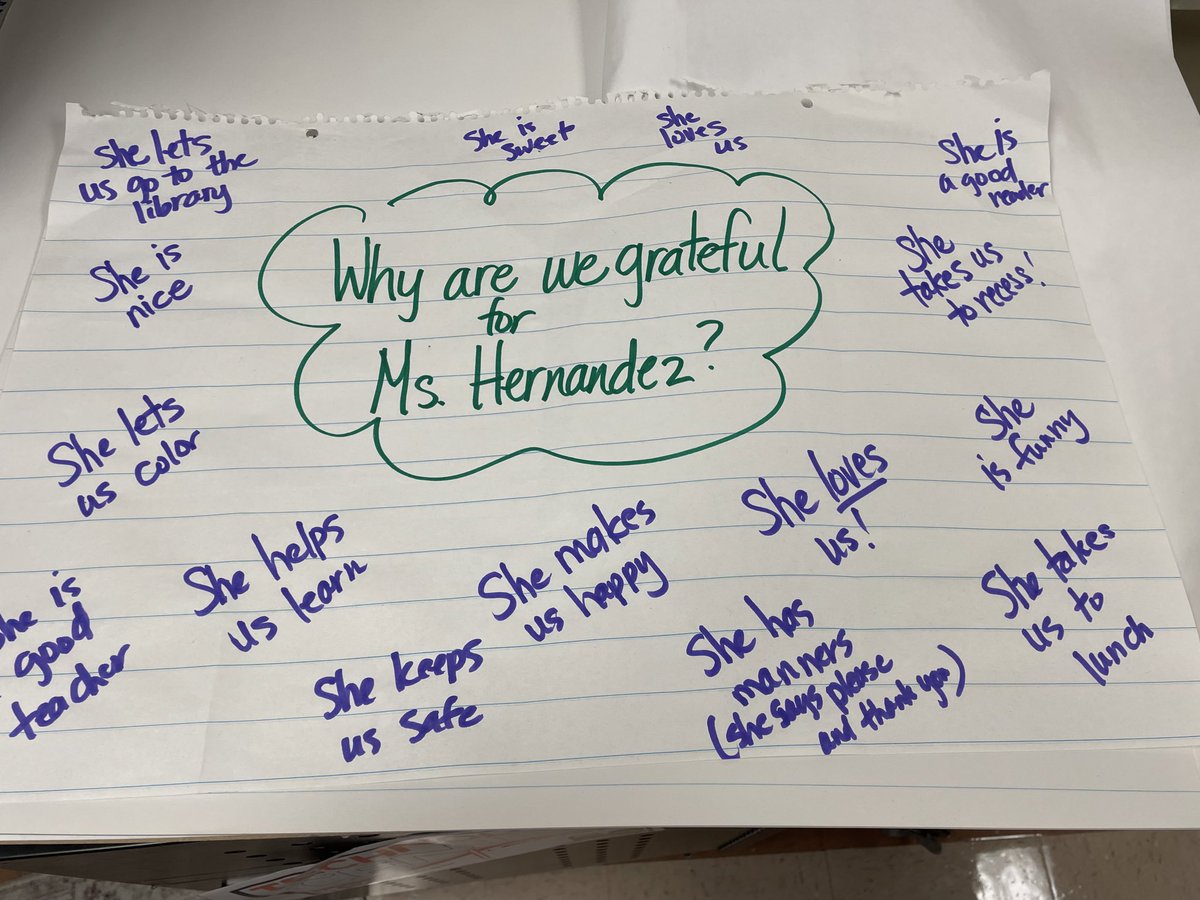 She lets
us go to the
library
She is
sweet
She
loves
us
She is
a good
reader
She is
nice
Why are we grateful
for
Ms. Hernandez?
She
takes us
to recess!
She lets
us color
She
is funny
She helps
us learn
She makes
us happy
She loves
us!
She takes
us to
lunch
he is
good
teacher
She keeps
us safe
She has
manners
(she says please
and thank you)